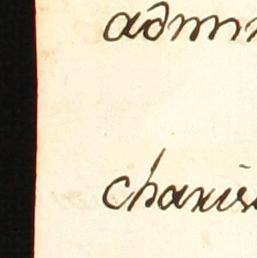 admin
charis